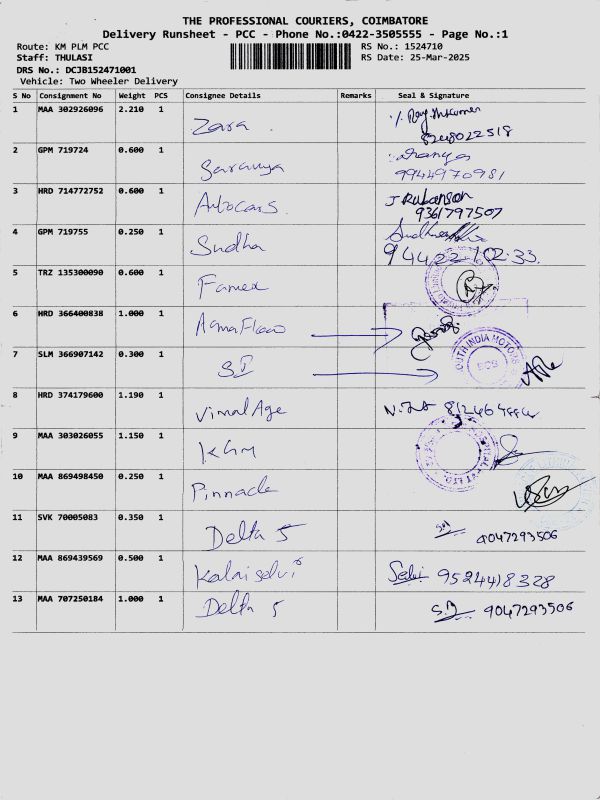 THE PROFESSIONAL COURIERS, COIMBATORE
Delivery Runsheet - PCC - Phone No.:0422-3505555 - Page No.:1
Route: KM PLM PCC
RS No.: 1524710
Staff: THULASI
RS Date: 25-Mar-2025
DRS No.: DCJB152471001
Vehicle: Two Wheeler Delivery
S No Consignment No Weight PCS Consignee Details Remarks Seal & Signature
1 MAA 302926096 2.210 1 Zara
8248022518
2 GPM 719724 0.600 1 Saranya
9944970981
3 HRD 714772752 0.600 1 Autocars. J Rubanson
9361797507
4 GPM 719755 0.250 1 Sudha
944 22 102 33.
5 TRZ 135300090 0.600 1 Famex
6 HRD 366400838 1.000 1 Acma Flow
7 SLM 366907142 0.300 1 SI
SOUTH INDIA MOTORS
8 HRD 374179600 1.190 1 Vimal Age
9 MAA 303026055 1.150 1 KGM
10 MAA 869498450 0.250 1 Pinnacle
11 SVK 70005083 0.350 1 Delta 5 9047293506
12 MAA 869439569 0.500 1 Kalaiselvi Selvi 9524418328
13 MAA 707250184 1.000 1 Delta 5 9047293506